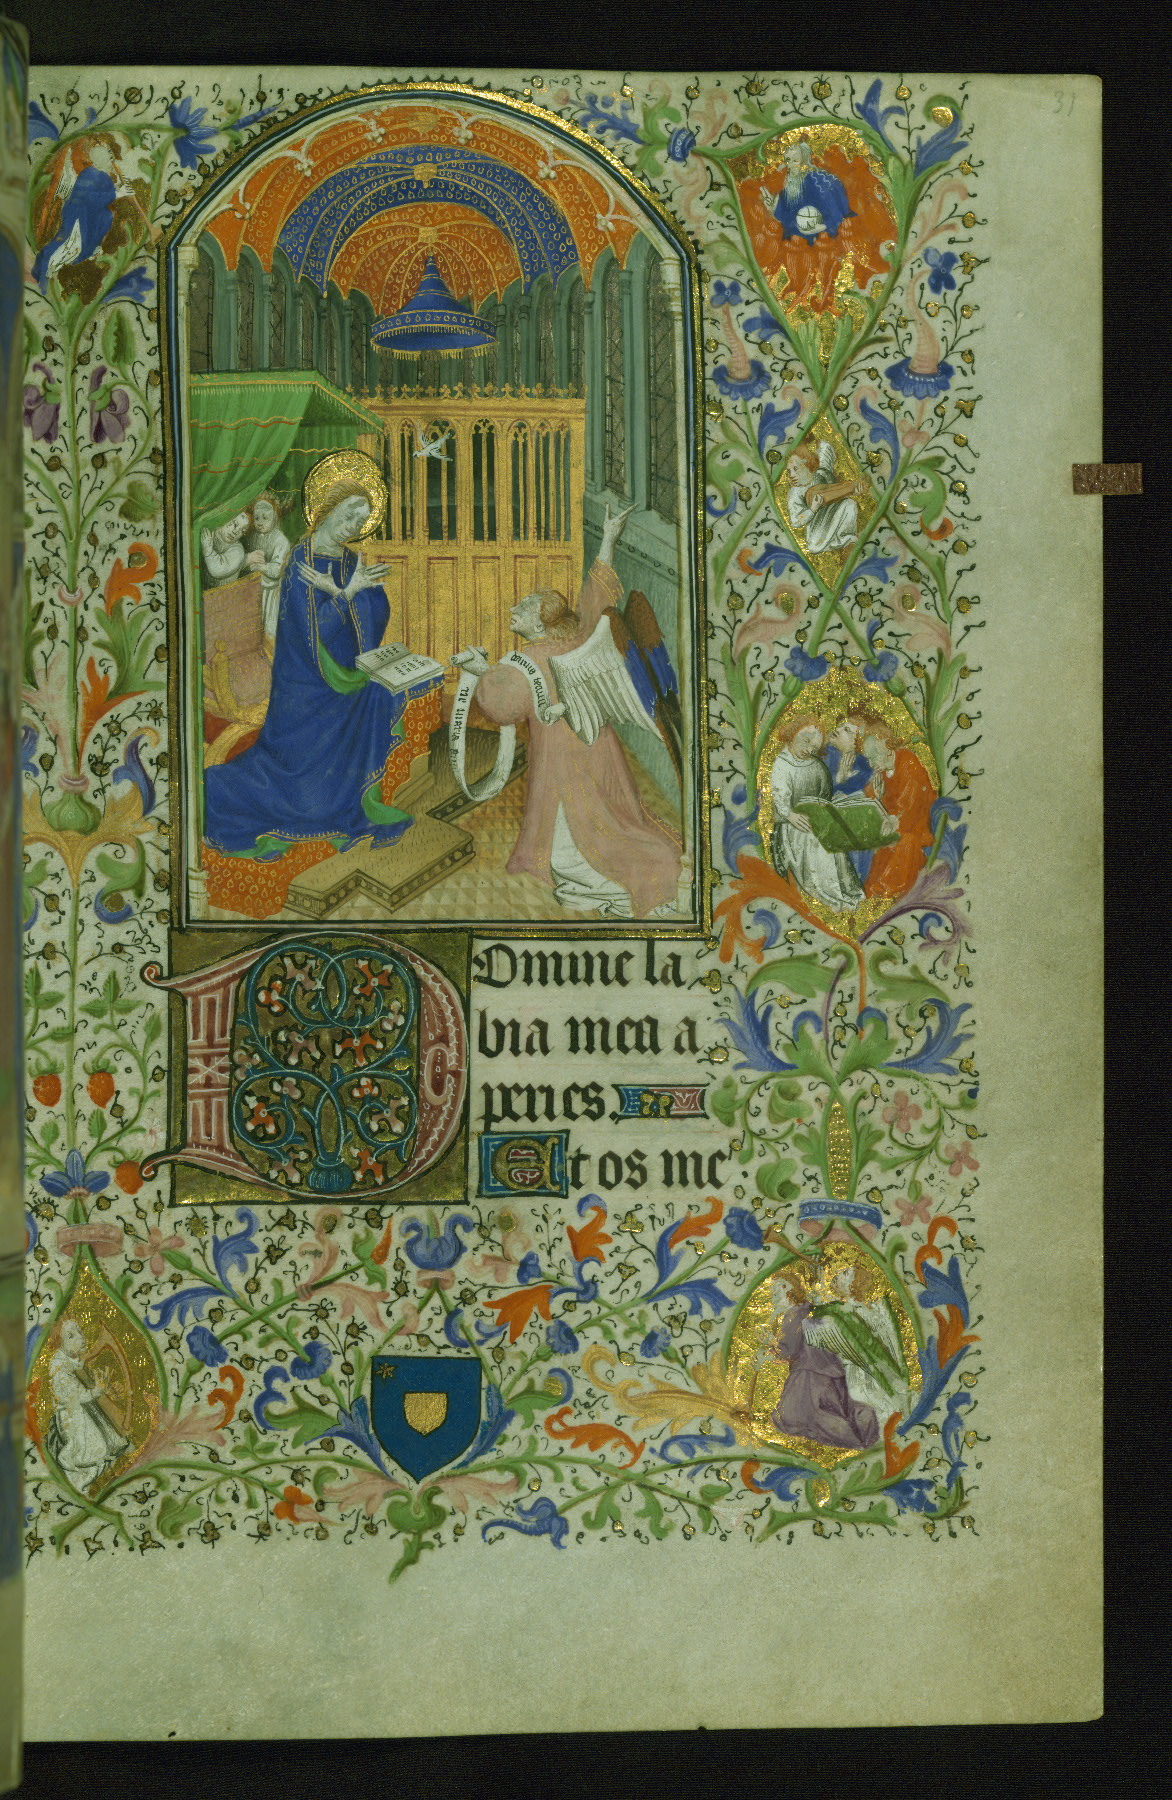 31
Domine la
bia mea a
peries.
Et os me